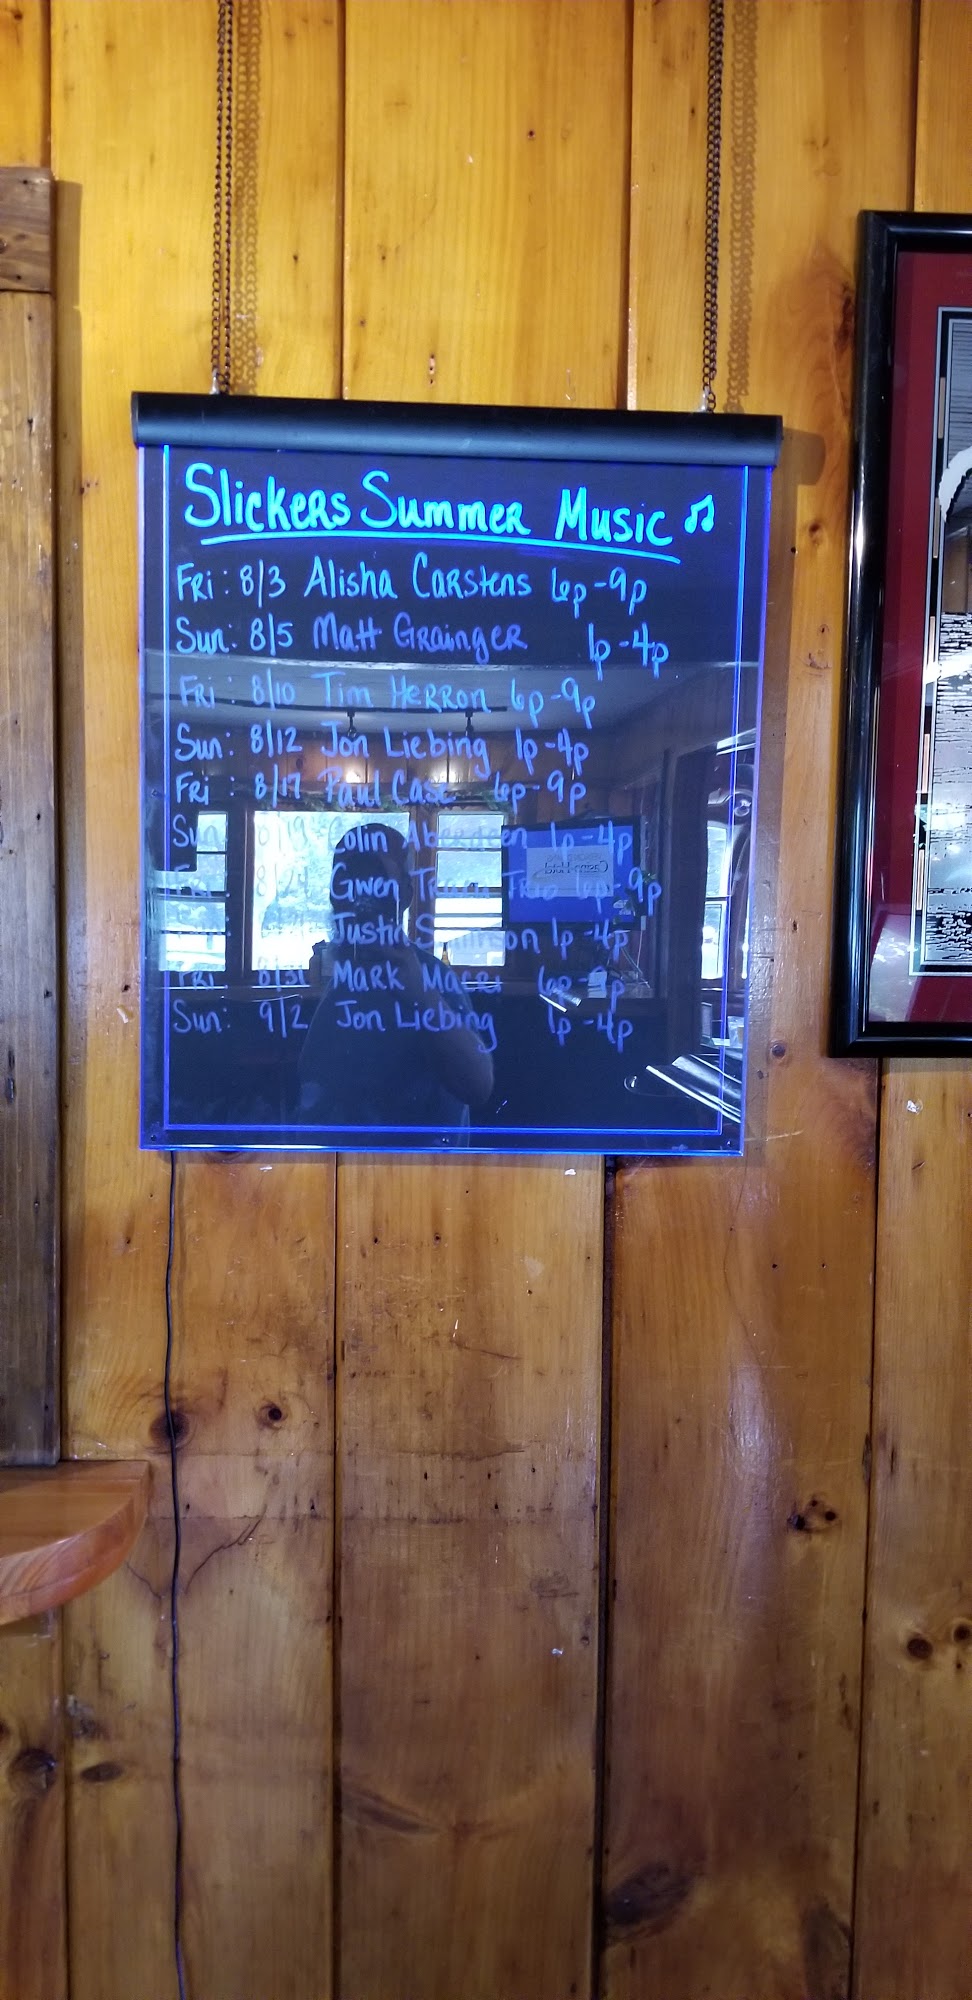 Slickers Summer Music
Fri: 8/3 Alisha Carstens 6p-9p
Sun: 8/5 Matt Grainger 1p-4p
Fri: 8/10 Tim Herron 6p-9p
Sun: 8/12 Jon Liebing 1p-4p
Fri: 8/17 Paul Case 6p-9p
Sun 8/19 Colin Aberdeen 1p-4p
Fri: 8/24 Gwen Trio 6p-9p
Justin 1p-4p
Fri: 8/31 Mark 6p-9p
Sun: 9/2 Jon Liebing 1p-4p